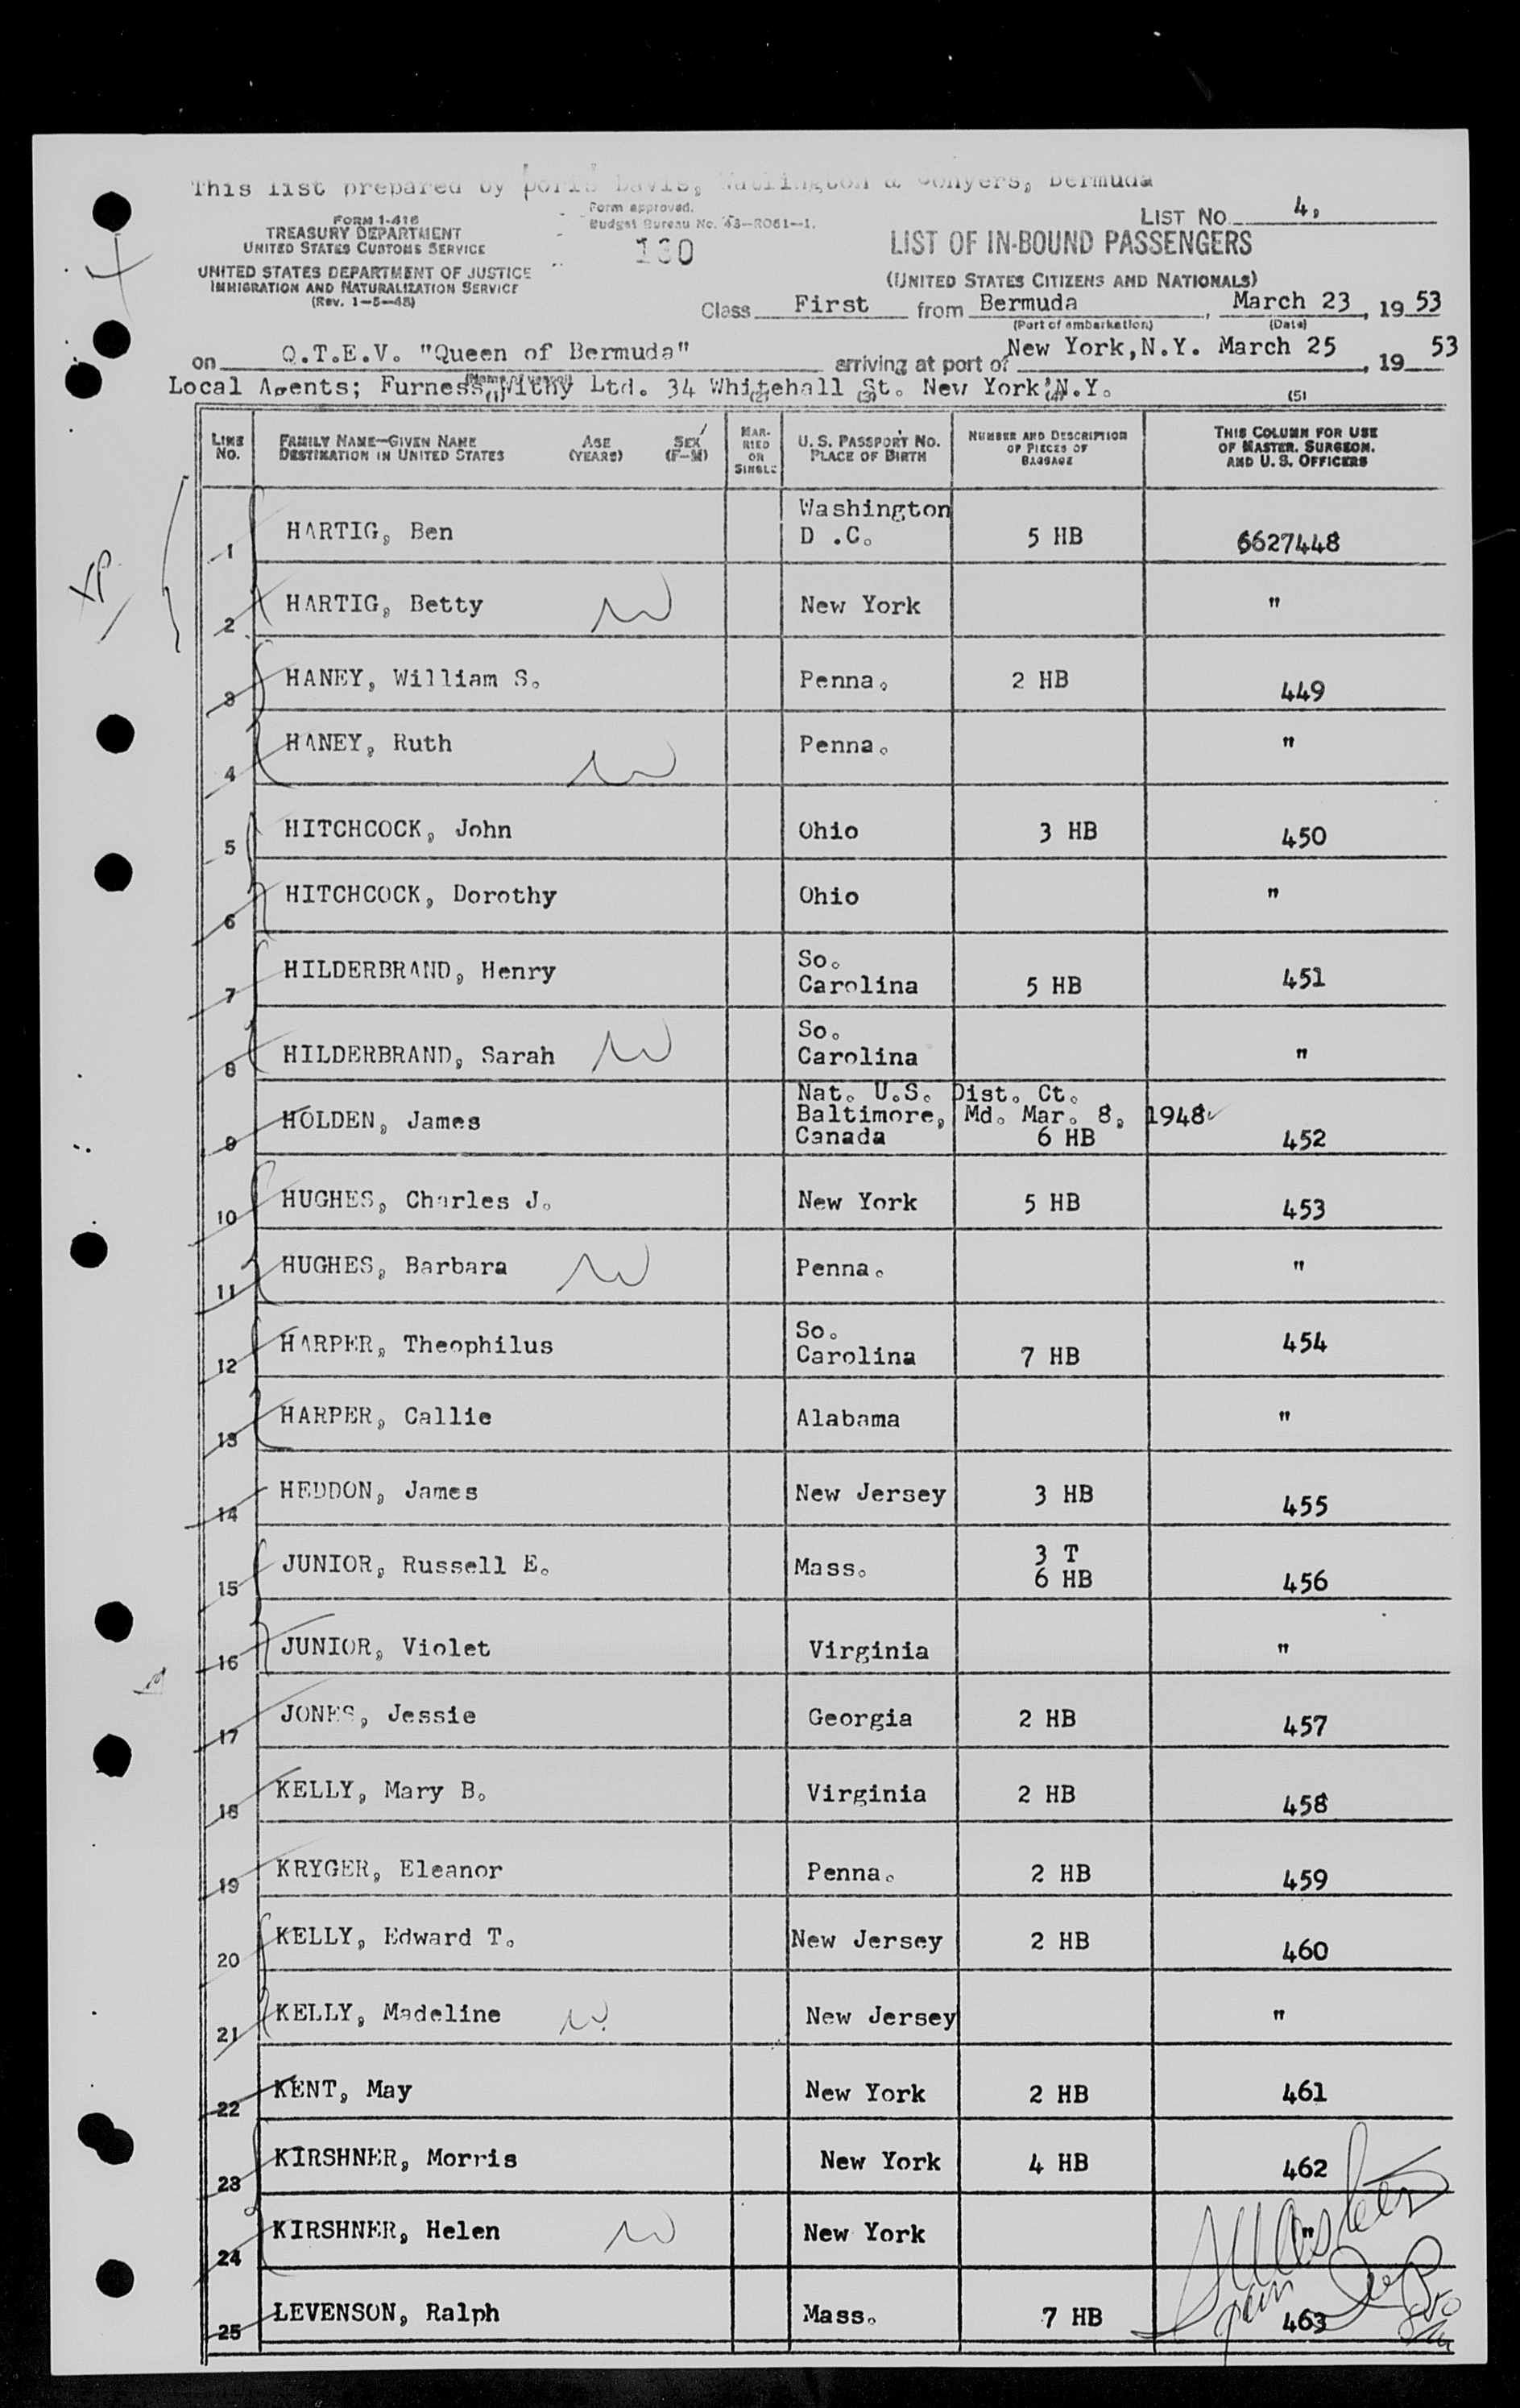 This list prepared by Doris Davis, Watlington & Conyers, Bermuda
FORM I-416
TREASURY DEPARTMENT
UNITED STATES CUSTOMS SERVICE
UNITED STATES DEPARTMENT OF JUSTICE
IMMIGRATION AND NATURALIZATION SERVICE
(Rev. 1-5-48)
Form approved.
Budget Bureau No. 43-R061-1.
130
LIST NO. 4,
LIST OF IN-BOUND PASSENGERS
(UNITED STATES CITIZENS AND NATIONALS)
Class First from Bermuda, March 23, 19 53
(Port of embarkation) (Date)
on Q.T.E.V. "Queen of Bermuda" arriving at port of New York, N.Y. March 25, 19 53
(Name of vessel)
Local Agents; Furness Withy Ltd. 34 Whitehall St. New York N.Y.
(1) (2) (3) (4) (5)
LINE NO. FAMILY NAME—GIVEN NAME DESTINATION IN UNITED STATES AGE (YEARS) SEX (F-M) MARRIED OR SINGLE U. S. PASSPORT NO. PLACE OF BIRTH NUMBER AND DESCRIPTION OF PIECES OF BAGGAGE THIS COLUMN FOR USE OF MASTER, SURGEON, AND U. S. OFFICERS
XP
1 HARTIG, Ben Washington D .C. 5 HB 6627448
2 HARTIG, Betty New York "
3 HANEY, William S. Penna. 2 HB 449
4 HANEY, Ruth Penna. "
5 HITCHCOCK, John Ohio 3 HB 450
6 HITCHCOCK, Dorothy Ohio "
7 HILDERBRAND, Henry So. Carolina 5 HB 451
8 HILDERBRAND, Sarah So. Carolina "
Nat. U.S. Dist. Ct.
Baltimore, Md. Mar. 8, 1948
9 HOLDEN, James Canada 6 HB 452
10 HUGHES, Charles J. New York 5 HB 453
11 HUGHES, Barbara Penna. "
12 HARPER, Theophilus So. Carolina 7 HB 454
13 HARPER, Callie Alabama "
14 HEDDON, James New Jersey 3 HB 455
15 JUNIOR, Russell E. Mass. 3 T 6 HB 456
16 JUNIOR, Violet Virginia "
17 JONES, Jessie Georgia 2 HB 457
18 KELLY, Mary B. Virginia 2 HB 458
19 KRYGER, Eleanor Penna. 2 HB 459
20 KELLY, Edward T. New Jersey 2 HB 460
21 KELLY, Madeline New Jersey "
22 KENT, May New York 2 HB 461
23 KIRSHNER, Morris New York 4 HB 462
24 KIRSHNER, Helen New York "
25 LEVENSON, Ralph Mass. 7 HB 463